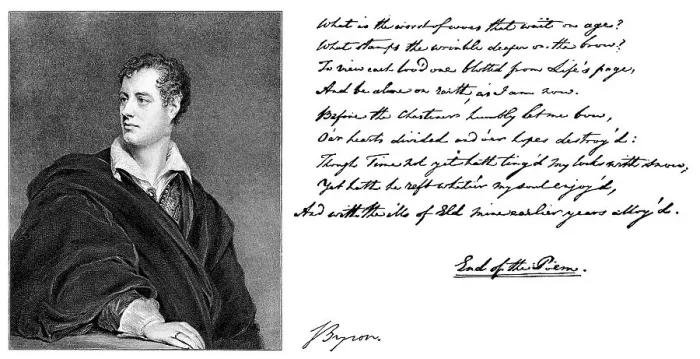 What is the worst of woes that wait on age?
What stamps the wrinkle deeper on the brow?
To view each lov'd one blotted from Life's page,
And be alone on earth, as I am now.
Before the Chastener humbly let me bow,
O'er hearts divided and o'er hopes destroy'd:
Though Time not yet hath ting'd my locks with snow,
Yet hath he reft whate'er my soul enjoy'd,
And with the ills of Eld mine earlier years alloy'd.
End of the Poem.
Byron.